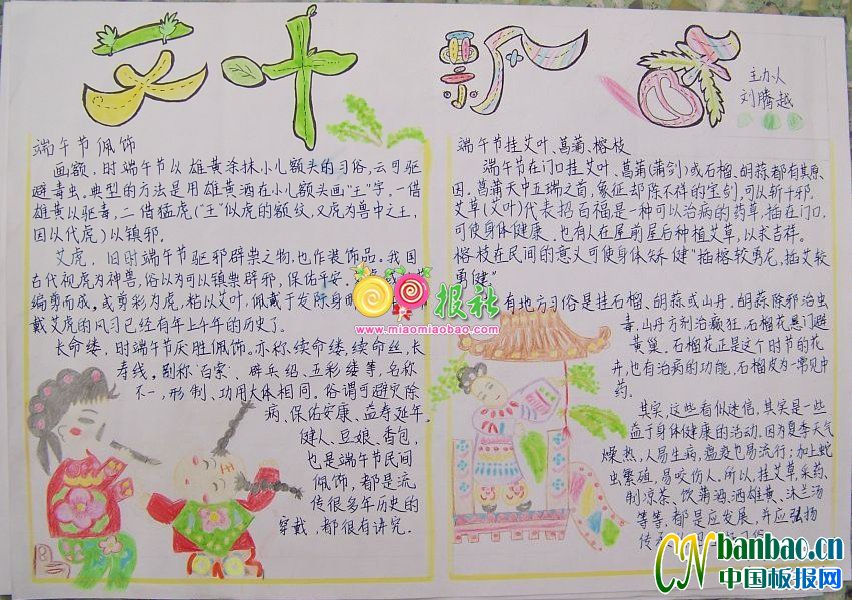 艾叶飘香
主办人
刘腾越
端午节佩饰
画额,时端午节以雄黄涂抹小儿额头的习俗,云可驱
避毒虫。典型的方法是用雄黄酒在小儿额头画"王"字,一借
雄黄以驱毒,二借猛虎("王"似虎的额纹,又虎为兽中之王,
因以代虎)以镇邪。
艾虎,旧时端午节驱邪辟祟之物,也作装饰品。我国
古代视虎为神兽,俗以为可以镇祟辟邪、保佑平安。
编剪而成,或剪彩为虎,粘以艾叶,佩戴于发际身
戴艾虎的风习已经有年上午年的历史了。
长命缕,时端午节厌胜佩饰。亦称续命缕,续命丝,长
寿线,别称"百索"、辟兵绍、五彩缕等,名称
不一,形制、功用大体相同。俗谓可避灾除
病、保佑安康、益寿延年。
健人、豆娘、香包,
也是端午节民间
佩饰,都是流
传很多年历史的
穿戴,都很有讲究。
端午节挂艾叶、菖蒲、榕枝
端午节在门口挂艾叶、菖蒲(蒲剑)或石榴、胡蒜都有其原
因。菖蒲天中五瑞之首,象征却除不祥的宝剑,可以斩千邪。
艾草(艾叶)代表招百福是一种可以治病的药草,插在门口,
可使身体健康、也有人在屋前屋后种植艾草,以求吉祥。
榕枝在民间的意义可使身体矫健"插榕较勇龙,插艾较
勇健"
有地方习俗是挂石榴、胡蒜或山丹,胡蒜除邪治虫
毒,山丹方剂治癫狂,石榴花悬门避
黄巢。石榴花正是这个时节的花
卉,也有治病的功能,石榴皮为一常见中
药。
其实,这些看似迷信,其实是一些
益于身体健康的活动,因为夏季天气
燥热,人易生病,瘟疫也易流行;加上蛇
虫繁殖,易咬伤人,所以,挂艾草,采药、
制凉茶、饮蒲酒,洒雄黄、沐兰汤
等等,都是应发展,并应强扬
传
报社
www.miaomiaobao.com
CN banbao.cn
中国板报网